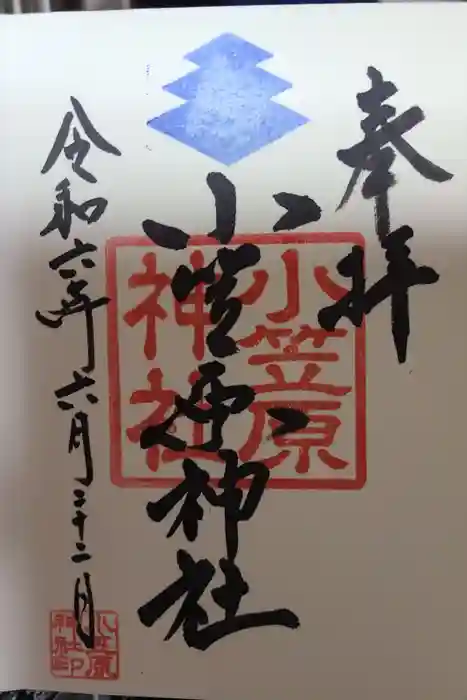 奉拝
小笠原神社
小笠原
神社
令和六年六月二十二日
小笠原
神社印